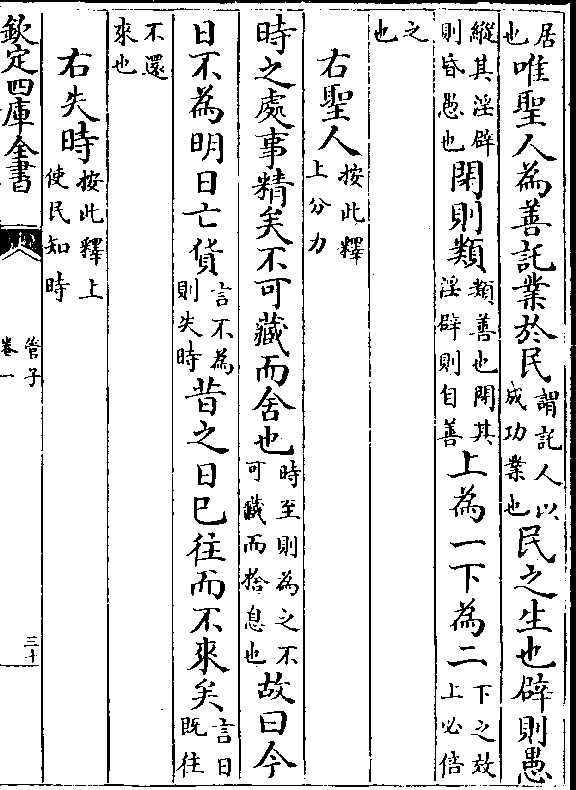 居也唯聖人為善託業於民謂託人以成功業也民之生也辟則愚
縱其淫辟則昏愚也閑則類類善也閑其淫辟則自善上為一下為二下之效上必倍
之也
右聖人按此釋上分力
時之處事精矣不可藏而舍也時至則為之不可藏而捨息也故曰今
日不為明日亡貨言不為則失時昔之日已往而不來矣言日既往
不還來也
右失時按此釋上使民知時
欽定四庫全書
管子
卷一
三十